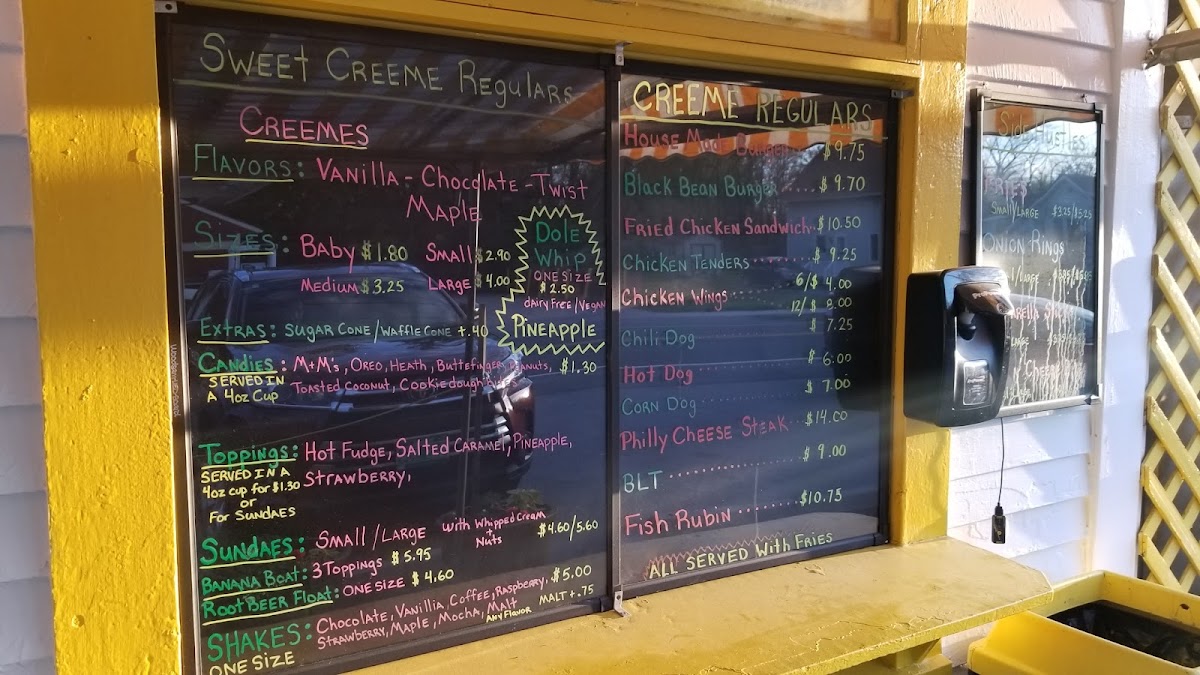 Sweet Creeme Regulars
Creemes
Flavors: Vanilla - Chocolate - Twist
Maple
Sizes: Baby $1.80 Small $2.90
Medium $3.25 Large $4.00
Dole
Whip
one size
$2.50
dairy free/vegan
Pineapple
Extras: Sugar Cone/Waffle Cone +.40
Candies: M+M's, Oreo, Heath, Butterfinger, Peanuts, $1.30
Served in Toasted Coconut, Cookie dough
a 4oz cup
Toppings: Hot Fudge, Salted Caramel, Pineapple,
Served in a Strawberry,
4oz cup for $1.30
or
For Sundaes
Sundaes: Small/Large with Whipped Cream + Nuts $4.60/5.60
Banana Boat: 3 Toppings $5.95
Root Beer Float: one size $4.60
Shakes: Chocolate, Vanillia, Coffee, Raspberry, $5.00
Strawberry, Maple, Mocha, Malt Any Flavor Malt +.75
One Size
Creeme Regulars
House Made Burger $9.75
Black Bean Burger.....$9.70
Fried Chicken Sandwich..$10.50
Chicken Tenders.........$9.25
Chicken Wings....... 6/$4.00
12/$8.00
Chili Dog $7.25
Hot Dog $6.00
Corn Dog $7.00
Philly Cheese Steak..$14.00
BLT............$9.00
Fish Rubin........$10.75
All Served With Fries
Side Hustles
Fries
Small/Large $3.25/$5.25
Onion Rings